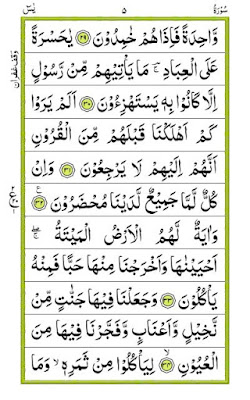 سُوْرَةُ ٥ يٰسٓ
وَّاحِدَةً فَاِذَا هُمْ خٰمِدُوْنَ ﴿٢٩﴾ يٰحَسْرَةً
عَلَى الْعِبَادِ ۚ مَا يَاْتِيْهِمْ مِّنْ رَّسُوْلٍ
اِلَّا كَانُوْا بِهٖ يَسْتَهْزِءُوْنَ ﴿٣٠﴾ اَلَمْ يَرَوْا
كَمْ اَهْلَكْنَا قَبْلَهُمْ مِّنَ الْقُرُوْنِ
اَنَّهُمْ اِلَيْهِمْ لَا يَرْجِعُوْنَ ﴿٣١﴾ وَاِنْ
كُلٌّ لَّمَّا جَمِيْعٌ لَّدَيْنَا مُحْضَرُوْنَ ﴿٣٢﴾
وَاٰيَةٌ لَّهُمُ الْاَرْضُ الْمَيْتَةُ ۖۚ
اَحْيَيْنٰهَا وَاَخْرَجْنَا مِنْهَا حَبًّا فَمِنْهُ
يَاْكُلُوْنَ ﴿٣٣﴾ وَجَعَلْنَا فِيْهَا جَنّٰتٍ مِّنْ
نَّخِيْلٍ وَّاَعْنَابٍ وَّفَجَّرْنَا فِيْهَا مِنَ
الْعُيُوْنِ ﴿٣٤﴾ لِيَاْكُلُوْا مِنْ ثَمَرِهٖ ۙ وَمَا
وقف غفران